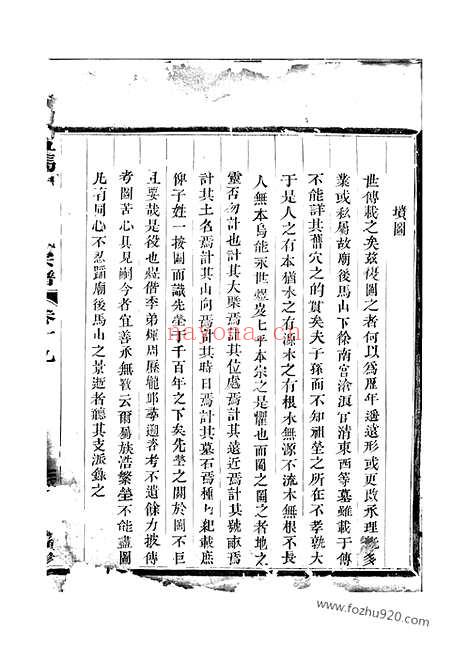 墳圖
世傳載之矣茲復圖之者何以為歷年遞遠形或更改承理
業或私屬故廟後馬山下徐南宮清東西等墓雖載于傳
不能詳其舊穴之的實矣夫子孫而不知祖塋之所在不孝孰大
于是人之有本猶水之有源木之有根水無源不流木無根不長
人無本烏能永世燬矣七平本宗之是懼也而圖之圖之者地之
靈否勿計也計其大槩焉計其位處焉計其遠近焉計其號畝焉
計其土名焉計其山向焉計其時日焉計其墓石焉種種紀載庶
俾子姓一按圖而識先塋于千百年之下矣先塋之關於圖不巨
且要哉是役也偕季弟輝周歷龍邱尋遡者考不遺餘力披傳
考圖苦心具見嗣今者宜善承無斁云爾易族浩繁塋不能盡圖
凡有同心不忍蹈廟後馬山之景遊者聽其支派錄之
宗譜
卷十九
nayona.cn
www.fozhu920.com